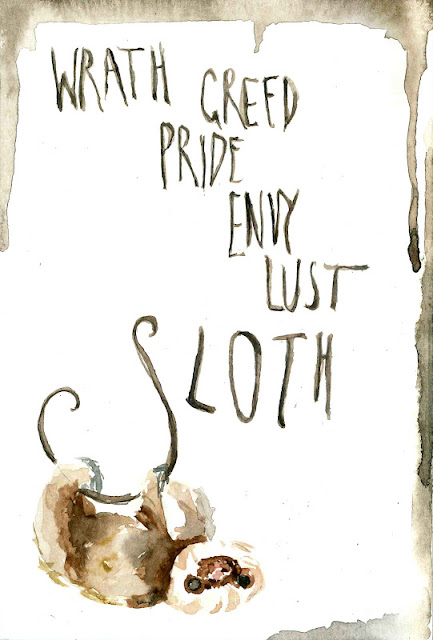 WRATH GREED
PRIDE
ENVY
LUST
SLOTH